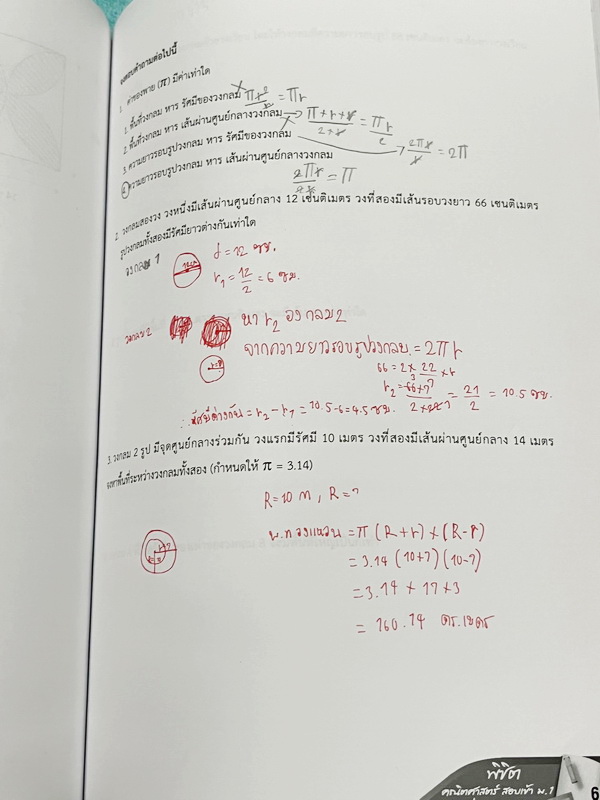 จงตอบคำถามต่อไปนี้
1. ค่าของพาย (π) มีค่าเท่าใด
1. พื้นที่วงกลม หาร รัศมีของวงกลม πr²/r = πr
2. พื้นที่วงกลม หาร เส้นผ่านศูนย์กลางวงกลม → π×r×r/2×r = πr/2
3. ความยาวรอบรูปวงกลม หาร รัศมีของวงกลม → 2πr/r = 2π
4. ความยาวรอบรูปวงกลม หาร เส้นผ่านศูนย์กลางวงกลม
2πr/2r = π
2. วงกลมสองวง วงหนึ่งมีเส้นผ่านศูนย์กลาง 12 เซนติเมตร วงที่สองมีเส้นรอบวงยาว 66 เซนติเมตร
รูปวงกลมทั้งสองมีรัศมียาวต่างกันเท่าใด
วงกลม 1
d = 12 ซม.
r₁ = 12/2 = 6 ซม.
วงกลม 2
หา r₂ วงกลม 2
จากความยาวรอบรูปวงกลม = 2πr
66 = 2 × 22/7 × r
r₂ = 66×7/2×22 = 21/2 = 10.5 ซม.
∴ รัศมีต่างกัน = r₂ - r₁ = 10.5-6 = 4.5 ซม.
3. วงกลม 2 รูป มีจุดศูนย์กลางร่วมกัน วงแรกมีรัศมี 10 เมตร วงที่สองมีเส้นผ่านศูนย์กลาง 14 เมตร
จงหาพื้นที่ระหว่างวงกลมทั้งสอง (กำหนดให้ π = 3.14)
R = 10 m , R = 7
พ.ท วงแหวน = π (R+r) × (R-r)
= 3.14 (10+7) (10-7)
= 3.14 × 17 × 3
= 160.14 ตร.เมตร
พิชิต
คณิตศาสตร์ สอบเข้า ม.1
6